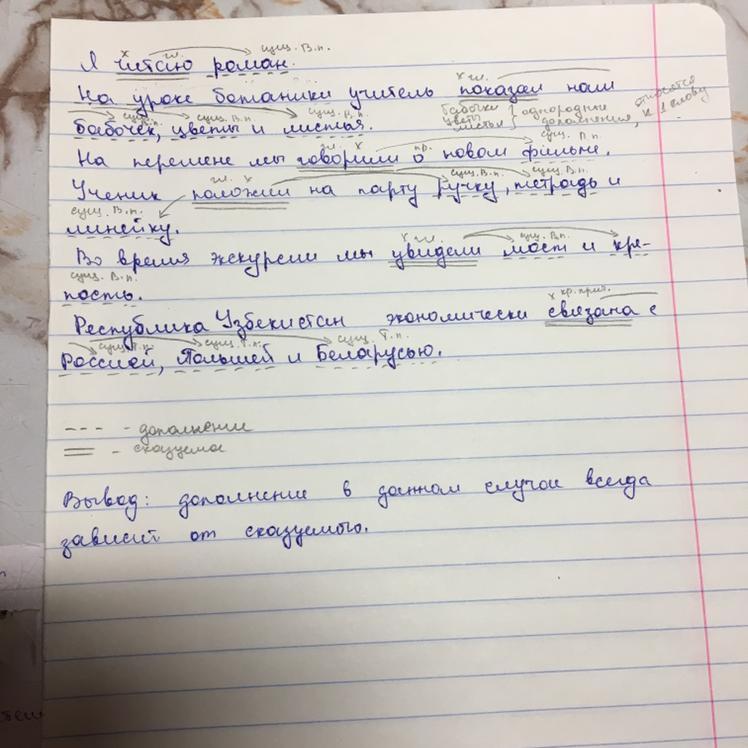 х гл. сущ. В.п.
Я читаю роман.
х гл.
На уроке ботаники учитель показал нам
сущ. В.п. сущ. В.п. сущ. В.п. бабочки цветы листья } однородные дополнения, относятся к 1 слову
бабочек, цветы и листья.
гл. х пр. сущ. П.п.
На перемене мы говорили о новом фильме.
гл. х сущ. В.п. сущ. В.п.
Ученик положил на парту ручку, тетрадь и
сущ. В.п.
линейку.
х гл. сущ. В.п.
Во время экскурсии мы увидели мост и кре-
сущ. В.п.
пость.
х кр. прич.
Республика Узбекистан экономически связана с
сущ. Т.п. сущ. Т.п. сущ. Т.п.
Россией, Польшей и Беларусью.
--- - дополнение
= - сказуемое
Вывод: дополнение в данном случае всегда
зависит от сказуемого.